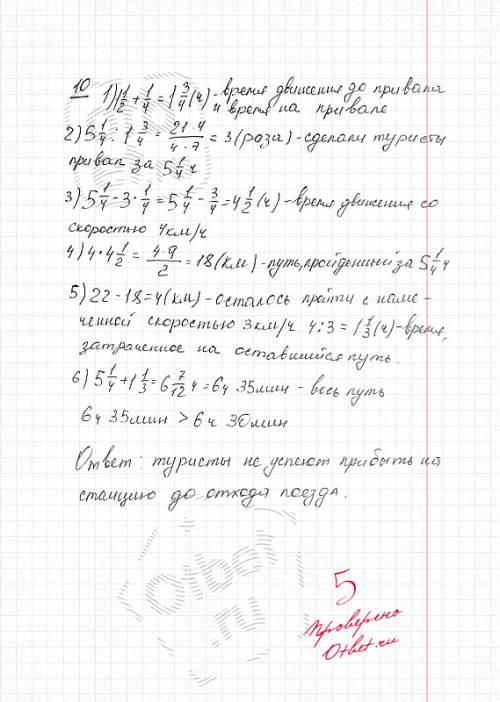 10 1) 1 1/2 + 1/4 = 1 3/4 (ч) - время движения до привала
и время на привале
2) 5 1/4 : 1 3/4 = 21·4/4·7 = 3 (раза) - сделали туристы
привал за 5 1/4 ч
3) 5 1/4 - 3 · 1/4 = 5 1/4 - 3/4 = 4 1/2 (ч) - время движения со
скоростью 4км/ч
4) 4 · 4 1/2 = 4·9/2 = 18 (км) - путь, пройденный за 5 1/4 ч
5) 22 - 18 = 4 (км) - осталось пройти с наме-
ченной скоростью 3км/ч 4:3 = 1 1/3 (ч) - время,
затраченное на оставшийся путь.
6) 5 1/4 + 1 1/3 = 6 7/12 ч = 6ч 35мин - весь путь
6ч 35мин > 6ч 30мин
Ответ: туристы не успеют прибыть на
станцию до отхода поезда.
Otbet
.ru
5
Проверено
Otbet.ru